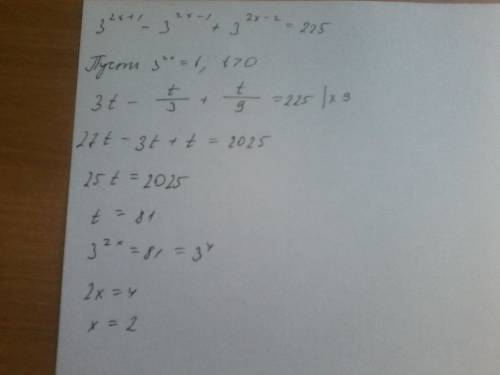 3^{2x+1} - 3^{2x-1} + 3^{2x-2} = 225
Пусть 3^{2x} = t, t>0
3t - t/3 + t/9 = 225 | x 9
27t - 3t + t = 2025
25t = 2025
t = 81
3^{2x} = 81 = 3^4
2x = 4
x = 2